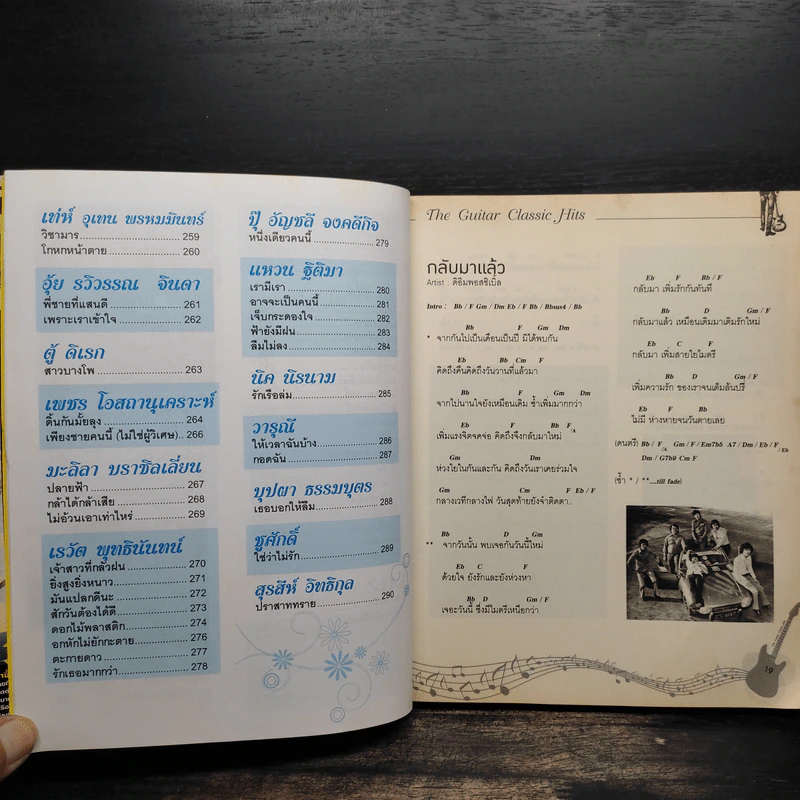 เท่ห์ อุเทน พรหมมินทร์
วิชามาร........................ 259
โกหกหน้าตาย.................... 260
อุ้ย รวิวรรณ จินดา
พี่ชายที่แสนดี.................... 261
เพราะเราเข้าใจ.................... 262
ตู้ ดิเรก
สาวบางโพ........................ 263
เพชร โอสถานุเคราะห์
ดิ้นกันมั้ยลุง.................... 264
เพียงชายคนนี้ (ไม่ใช่ผู้วิเศษ)........ 266
มะลิลา บราซิลเลี่ยน
ปลายฟ้า........................ 267
กล้าได้กล้าเสีย.................... 268
ไม่อ้วนเอาเท่าไหร่.................... 269
เรวัต พุทธินันทน์
เจ้าสาวที่กลัวฝน.................... 270
ยิ่งสูงยิ่งหนาว.................... 271
มันแปลกดีนะ.................... 272
สักวันต้องได้ดี.................... 273
ดอกไม้พลาสติก.................... 274
อกหักไม่ยักกะตาย.................... 276
ตะกายดาว........................ 277
รักเธอมากกว่า.................... 278
ปุ๊ อัญชลี จงคดีกิจ
หนึ่งเดียวคนนี้.................... 279
แหวน ฐิติมา
เรามีเรา........................ 280
อาจจะเป็นคนนี้.................... 281
เจ็บกระดองใจ.................... 282
ฟ้ายังมีฝน........................ 283
ลืมไม่ลง........................ 284
นิค นิรนาม
รักเรือล่ม........................ 285
วารุณี
ให้เวลาฉันบ้าง.................... 286
กอดฉัน........................ 287
บุปผา ธรรมบุตร
เธอบอกให้ลืม.................... 288
ชูศักดิ์
ใช่ว่าไม่รัก........................ 289
สุรสีห์ อิทธิกุล
ปราสาททราย.................... 290
The Guitar Classic Hits
กลับมาแล้ว
Artist : ดิอิมพอสซิเบิ้ล
Intro : Bb / F Gm / Dm Eb / F Bb / Bbsus4 / Bb
Bb F Gm Dm
* จากกันไปเป็นเดือนเป็นปี มิได้พบกัน
Eb Bb Cm F
คิดถึงคืนคิดถึงวันวานที่แล้วมา
Bb F Gm Dm
จากไปนานใจยังเหมือนเดิม ซ้ำเพิ่มมากกว่า
Eb F Bb F/A
เพิ่มแรงจิตจดจ่อ คิดถึงจึงกลับมาใหม่
Gm Dm
ห่วงใยในกันและกัน คิดถึงวันเราเคยร่วมใจ
Gm Cm F Eb / F
กลางเวทีกลางไฟ วันสุดท้ายยังจำติดตา..
Bb D Gm
** จากวันนั้น พบเจอกันวันนี้ใหม่
Eb C F
ด้วยใจ ยังรักและยังห่วงหา
Bb D Gm / F
เจอะวันนี้ ซึ่งมีไมตรีเหนือกว่า
Eb F Bb / F
กลับมา เพิ่มรักกันทันที
Bb D Gm / F
กลับมาแล้ว เหมือนเติมมาเติมรักใหม่
Eb C F
กลับมา เพิ่มสายใยไมตรี
Bb D Gm / F
เพิ่มความรัก ของเราจนเต็มล้นปรี่
Eb F Bb
ไม่มี ห่างหายจนวันตายเลย
(ดนตรี) Bb / F/A Gm / F / Em7b5 A7 / Dm / Eb / F/Eb
Dm / G7b9 Cm F
(ซ้ำ * / **....till fade)
19